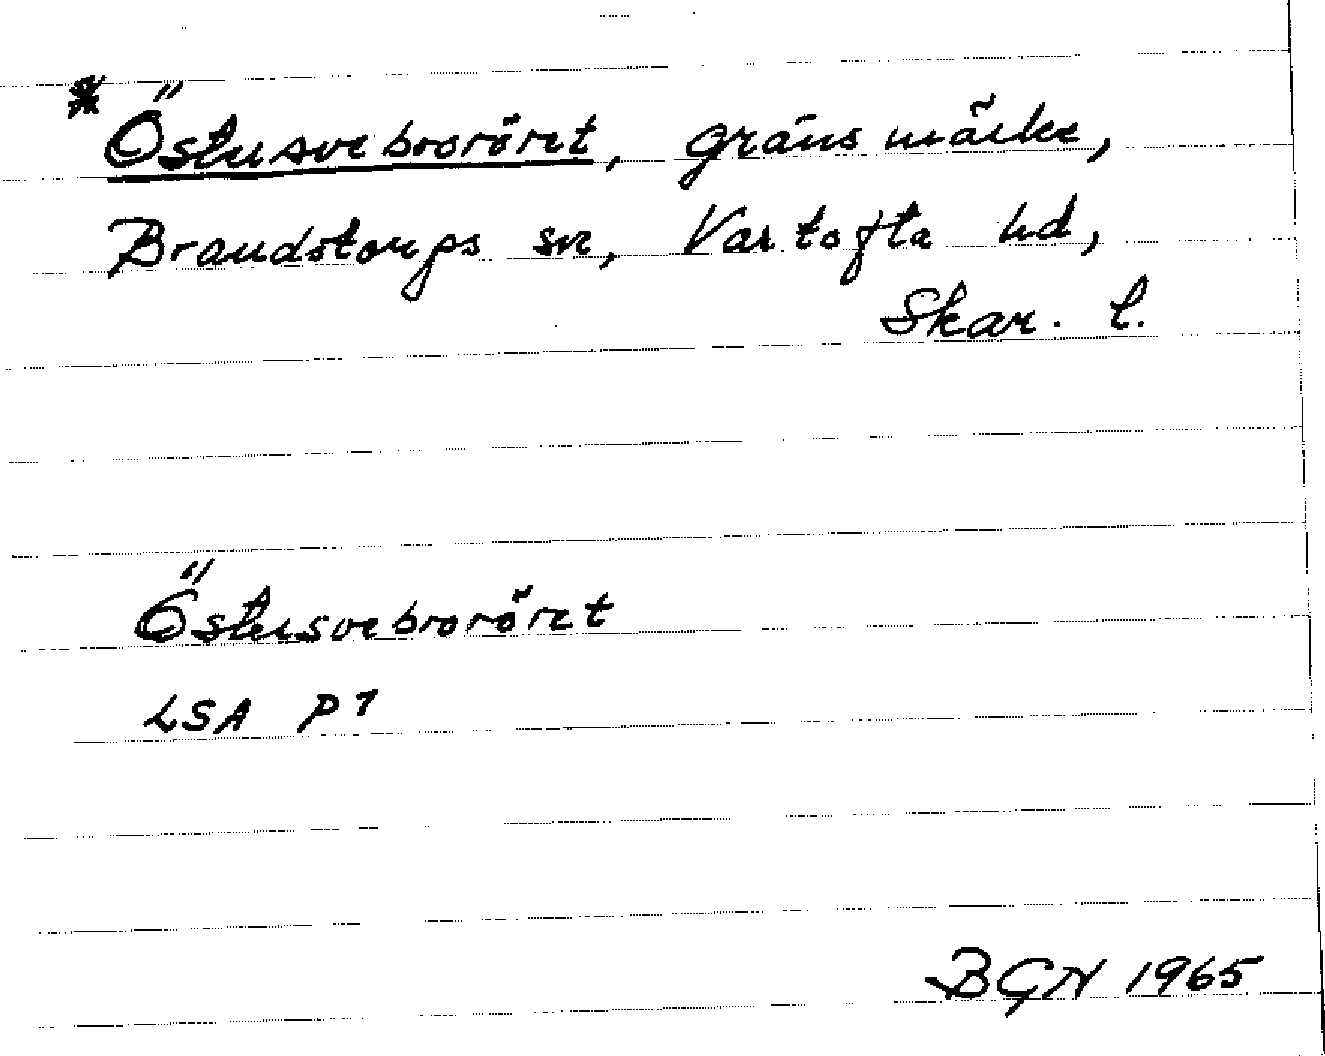 * Östersvebroröret, gränsmärke,
Brandstorps sn, Vartofta hd,
Skar. l.
Östersvebroröret
LSA P7
BGN 1965